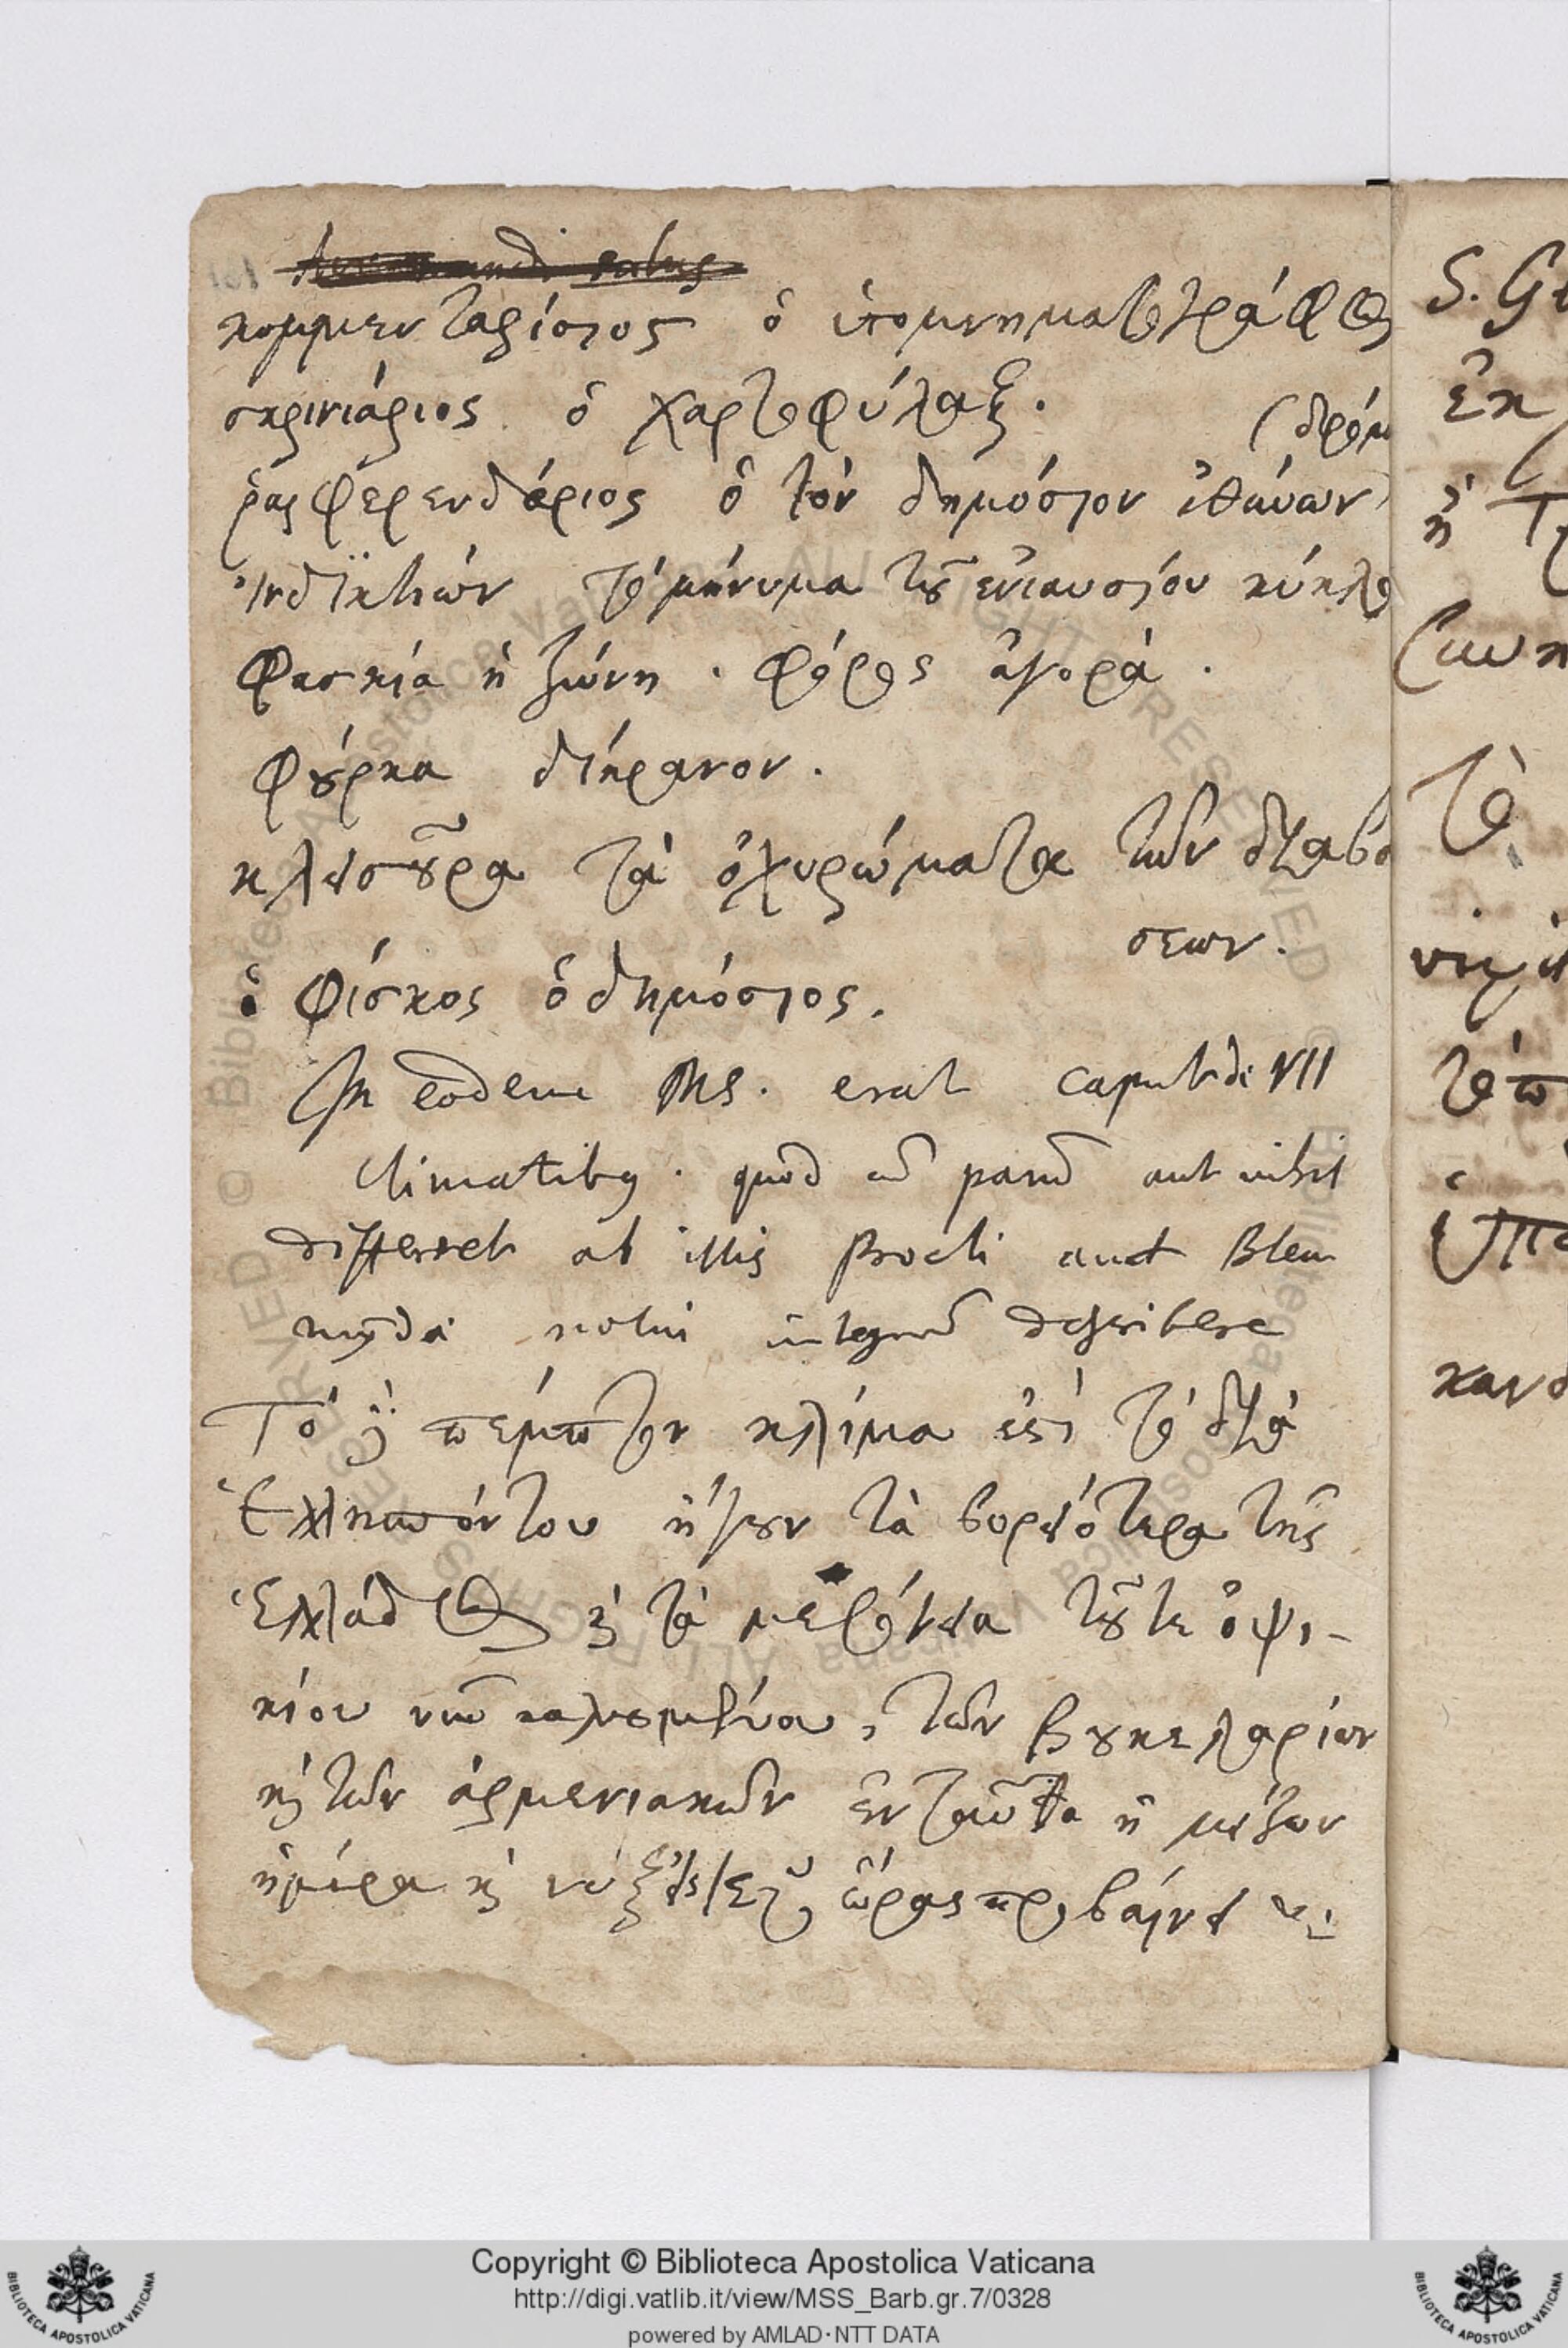 κομμενταρίσιος ὁ ὑπομνηματογράφος
σκρινιάριος ὁ χαρτοφύλαξ.
(δρόμ
ῥαιφερενδάριος ὁ τὸν δημόσιον ἰθύνων
ἰνδϊκτιών τὸ μήνυμα τοῦ ἐνιαυσίου κύκλο
φασκία ἡ ζώνη . φόρος ἀγορά .
φούρκα δίκρανον .
κλεισοῦρα τὰ ὀχυρώματα τῶν διαβά
σεων .
ὁ φίσκος ὁ δημόσιος .
In eodem MS. erat caput de VII
climatibus . quod cum parum aut nihil
differret ab illis Procli aut Blem
mydae nolui integrum describere
Τὸ δὲ πέμπτον κλίμα ἐστὶ τὸ διὰ
Ἑλλησπόντου ἤγουν τὰ βορειότερα τῆς
Ἑλλάδος καὶ τὰ μεσόγεια τοῦ τε ὀψι-
κίου νῦν καλουμένου, τῶν βουκελαρίων
καὶ τῶν ἀρμενιακῶν ἐνταῦθα ἡ μείζων
ἡμέρα καὶ νύξ ὥρας προβαίνει
S. G
ἐκ
ἢ
τὸ
καν
Copyright © Biblioteca Apostolica Vaticana
http://digi.vatlib.it/view/MSS_Barb.gr.7/0328
powered by AMLAD·NTT DATA
BIBLIOTECA APOSTOLICA VATICANA
BIBLIOTECA APOSTOLICA VATICANA